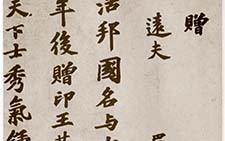 贈
遠夫
邦國名与
年後贈印王
天下士秀氣鍾